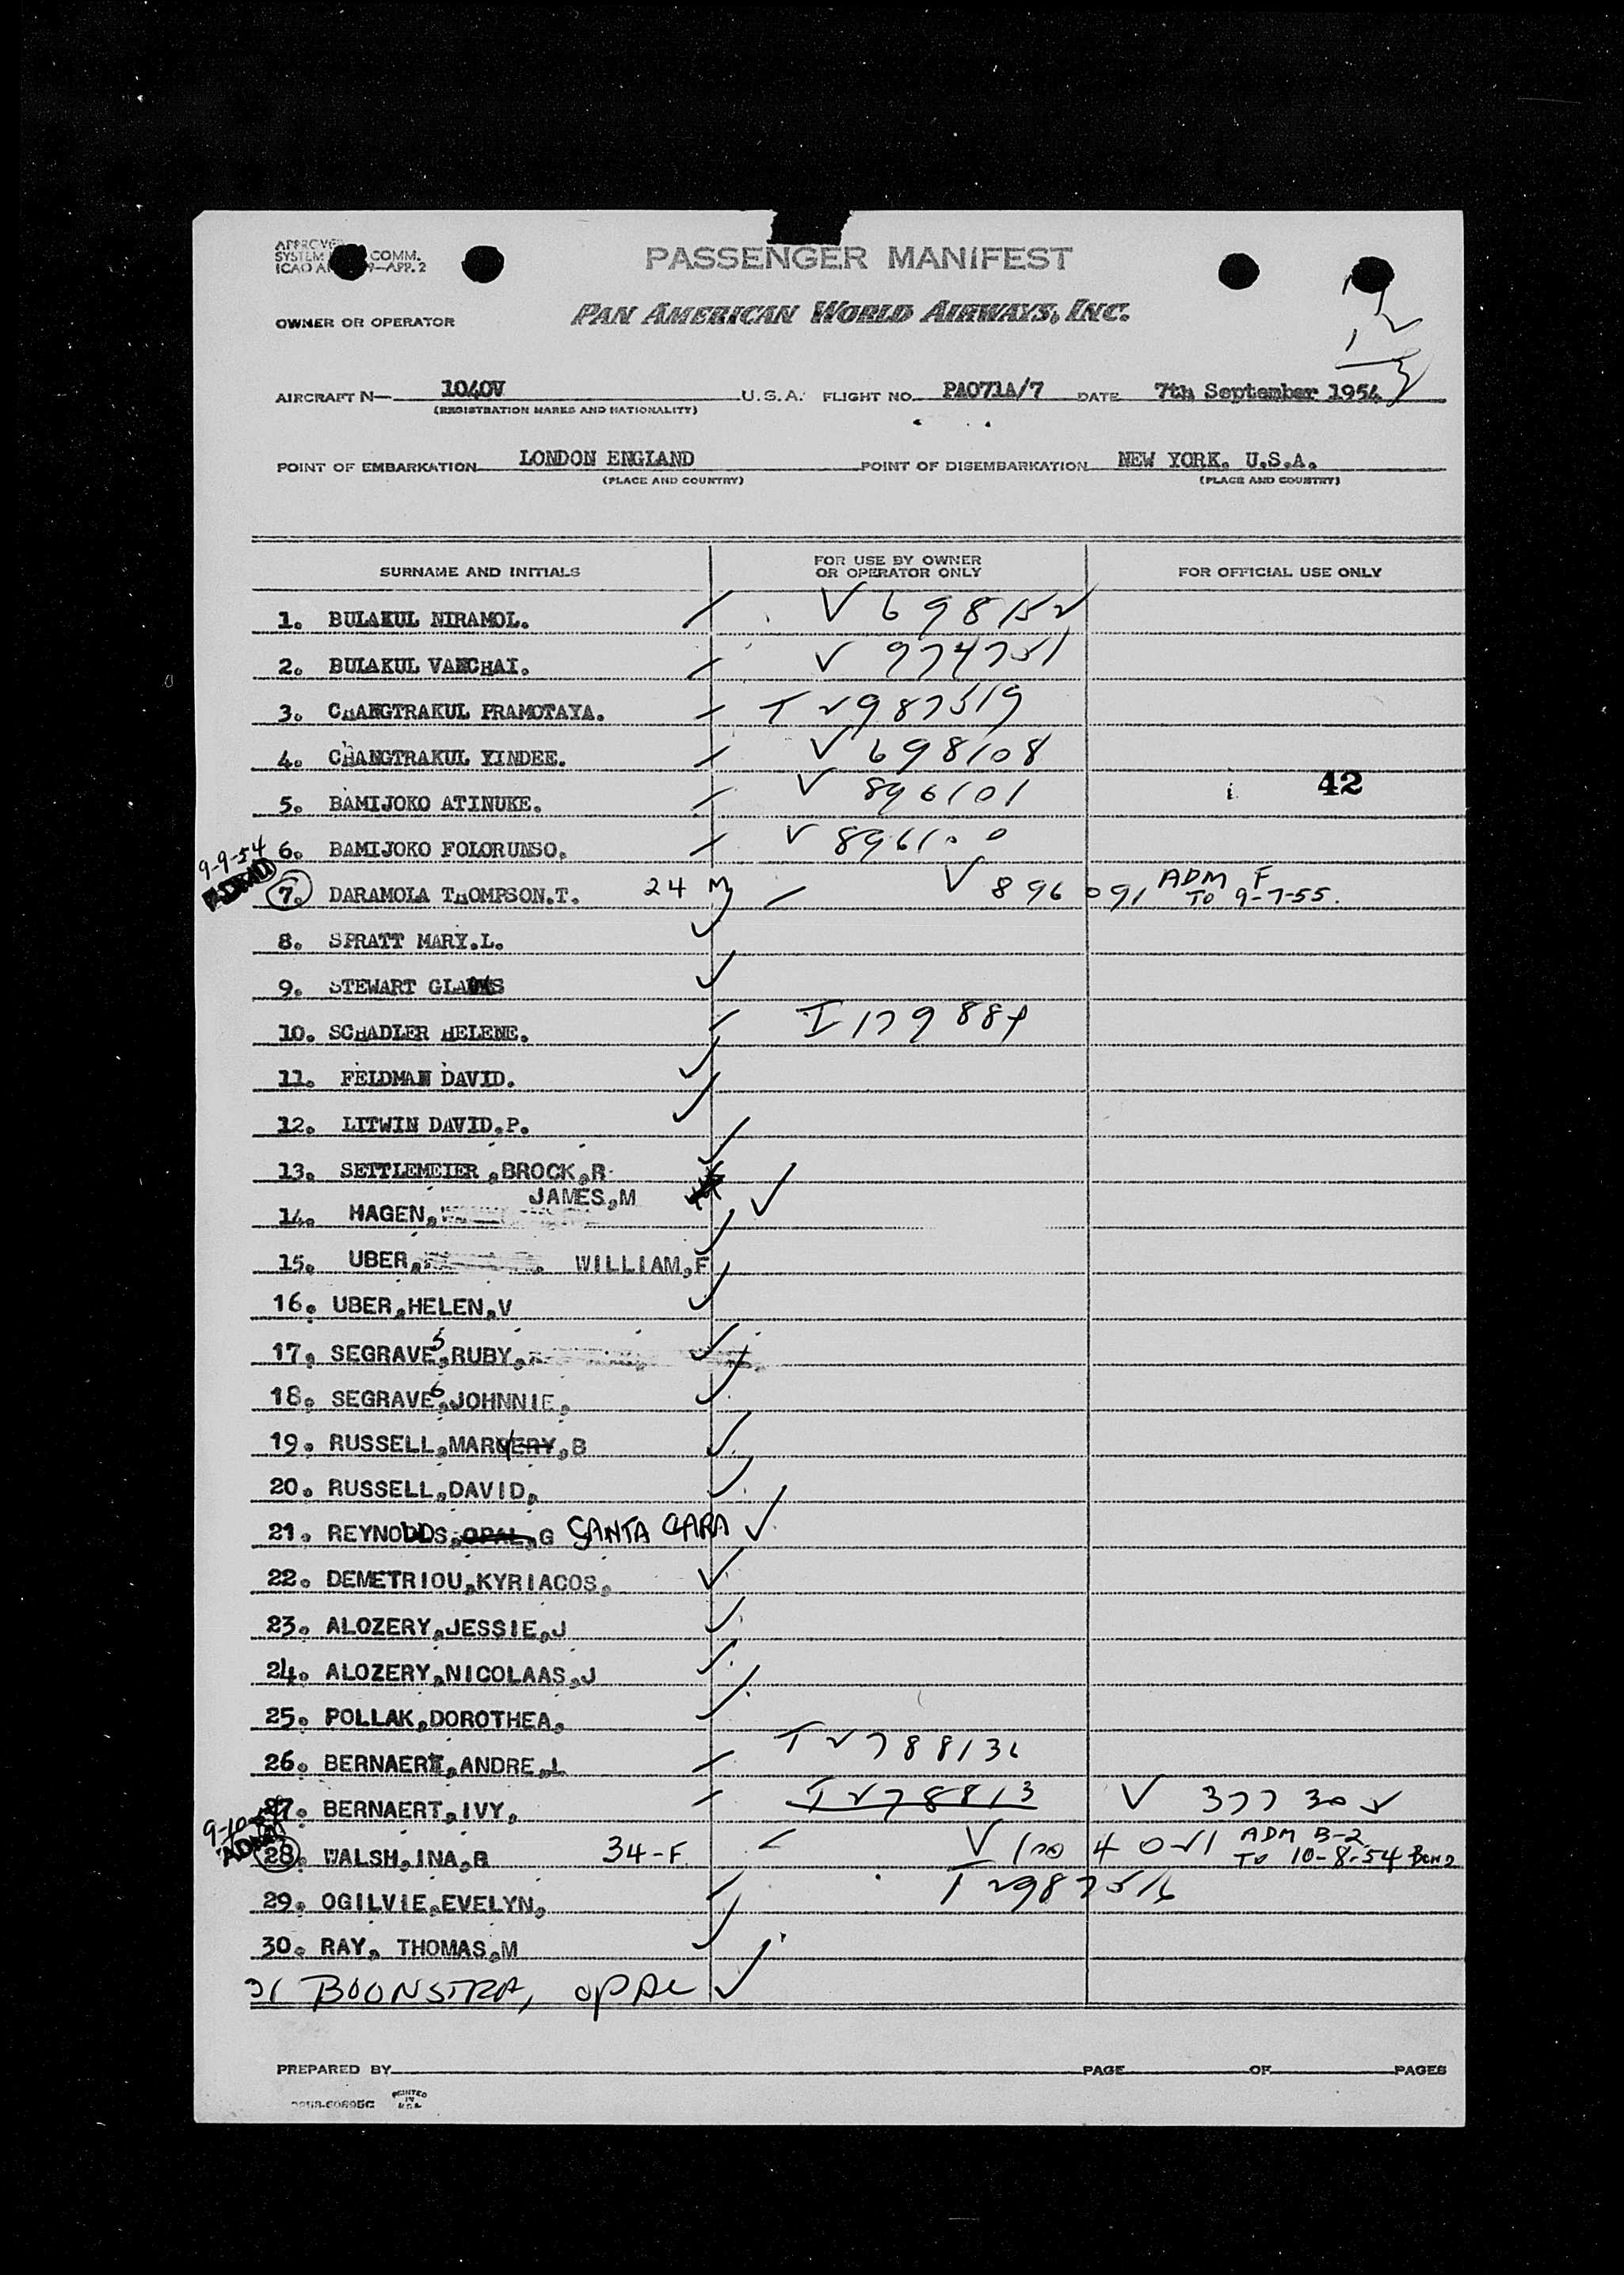 PASSENGER MANIFEST
COMM.
ICAO 9—APP. 2
OWNER OR OPERATOR
PAN AMERICAN WORLD AIRWAYS, INC.
AIRCRAFT N— 1040V U.S.A. FLIGHT NO. PA071A/7 DATE 7th September 1954
(REGISTRATION MARKS AND NATIONALITY)
POINT OF EMBARKATION LONDON ENGLAND POINT OF DISEMBARKATION NEW YORK. U.S.A.
(PLACE AND COUNTRY) (PLACE AND COUNTRY)
SURNAME AND INITIALS FOR USE BY OWNER OR OPERATOR ONLY FOR OFFICIAL USE ONLY
1. BULAKUL NIRAMOL. V
2. BULAKUL VANCHAI. V
3. CHANGTRAKUL PRAMOTAYA.
4. CHANGTRAKUL YINDEE. V 698108
42
5. BAMIJOKO ATINUKE. V 896101
6. BAMIJOKO FOLORUNSO. V 896100
9-9-54
7. DARAMOLA THOMPSON.T. 24 M V 896 091 ADM F TO 9-7-55.
8. SPRATT MARY.L.
9. STEWART GLADYS
10. SCHADLER HELENE.
11. FELDMAN DAVID.
12. LITWIN DAVID.P.
13. SETTLEMEIER,BROCK,R
JAMES,M
14. HAGEN,
15. UBER, WILLIAM,F
16. UBER,HELEN,V
17. SEGRAVES,RUBY,
18. SEGRAVE,JOHNNIE,
19. RUSSELL,MARY,B
20. RUSSELL,DAVID,
21. REYNOLDS,OPAL,G SANTA CLARA
22. DEMETRIOU,KYRIACOS,
23. ALOZERY,JESSIE,J
24. ALOZERY,NICOLAAS,J
25. POLLAK,DOROTHEA,
26. BERNAERT,ANDRE,L
27. BERNAERT,IVY,
28. WALSH,INA,R 34-F ADM B-2 TO 10-8-54 BOND
29. OGILVIE,EVELYN,
30. RAY, THOMAS,M
31 BOONSTRA,
PREPARED BY PAGE OF PAGES
PRINTED IN U.S.A.